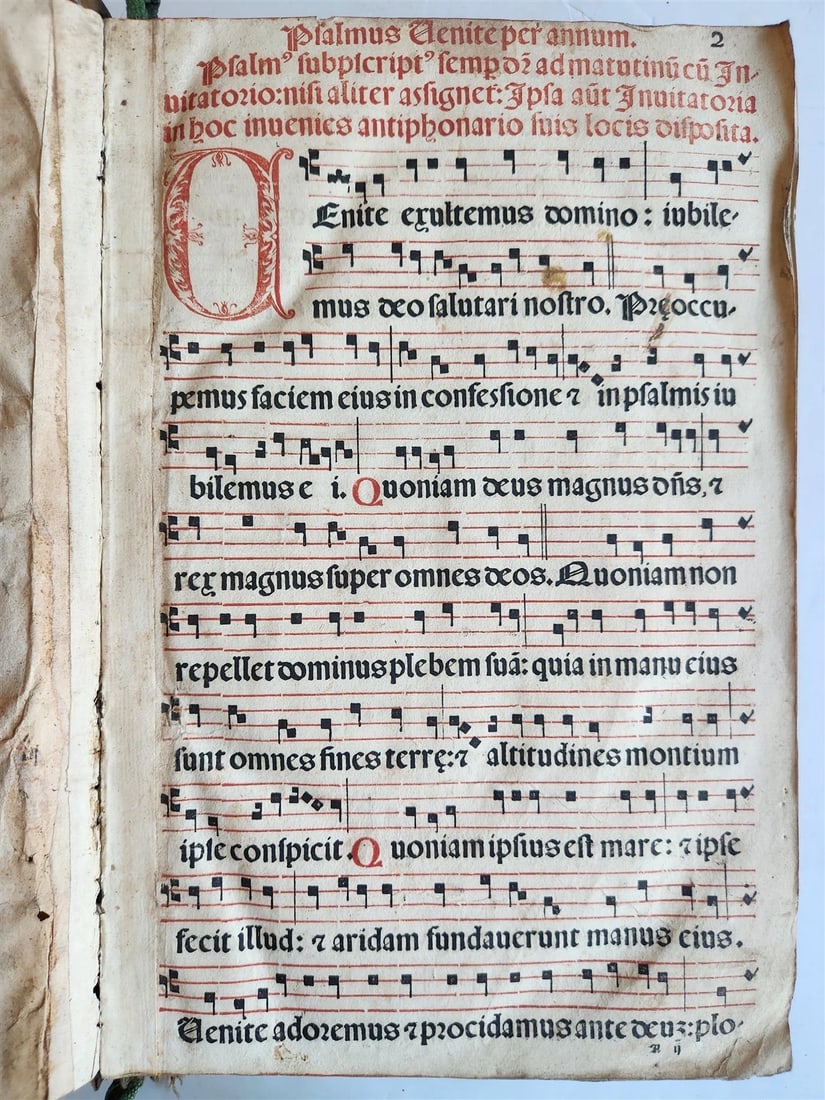 Psalmus Uenite per annum.
2
Psalmꝰ subpscriptꝰ semꝑ dr̄ ad matutinū cū In-
uitatorio: nisi aliter assignet̄: Ipsa aūt Inuitatoria
in hoc inuenies antiphonario suis locis disposita.
UEnite exultemus domino: iubile-
mus deo salutari nostro. Pręoccu-
pemus faciem eius in confessione ⁊ in psalmis iu
bilemus e i. Quoniam deus magnus dn̄s, ⁊
rex magnus super omnes deos. Quoniam non
repellet dominus plebem suā: quia in manu eius
sunt omnes fines terrę: ⁊ altitudines montium
ipse conspicit. Quoniam ipsius est mare: ⁊ ipse
fecit illud: ⁊ aridam fundauerunt manus eius.
Uenite adoremus ⁊ procidamus ante deuꝫ: plo-
ij